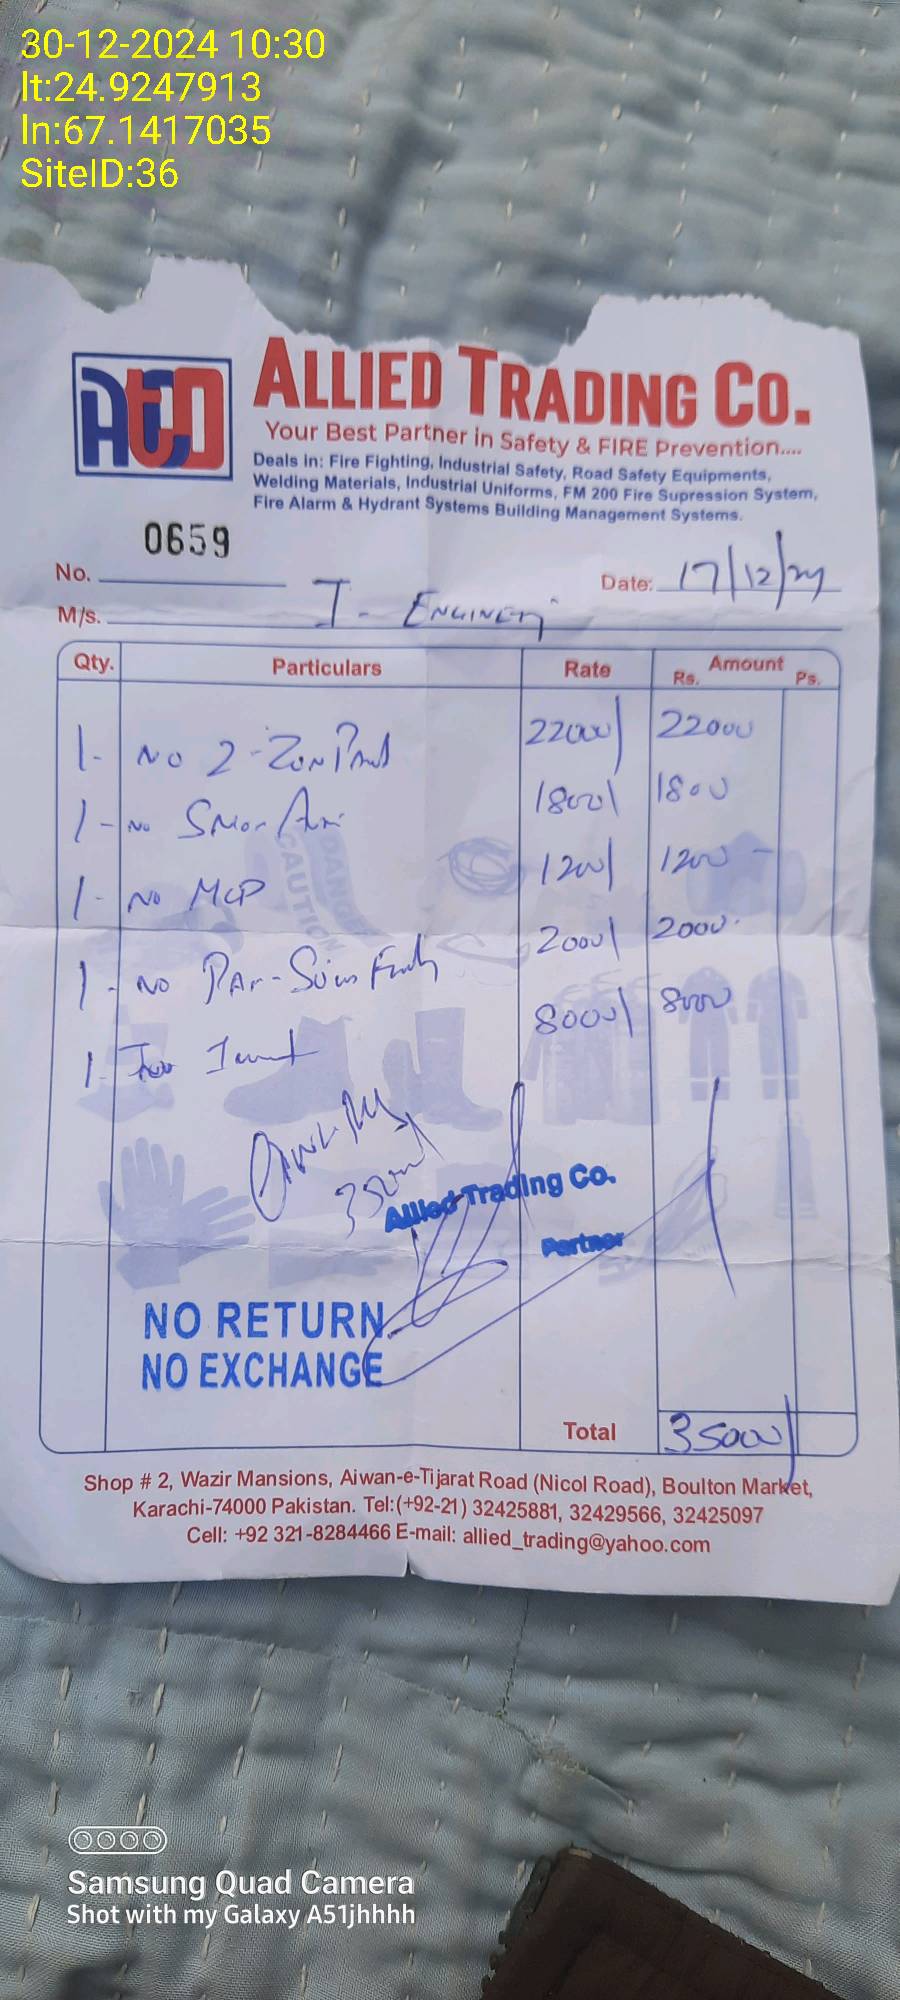 30-12-2024 10:30
lt:24.9247913
ln:67.1417035
SiteID:36
ATCO
ALLIED TRADING CO.
Your Best Partner in Safety & FIRE Prevention....
Deals in: Fire Fighting, Industrial Safety, Road Safety Equipments,
Welding Materials, Industrial Uniforms, FM 200 Fire Supression System,
Fire Alarm & Hydrant Systems Building Management Systems.
0659
No. Date: 17/12/24
M/s. I- Engineer
Qty. Particulars Rate Amount
Rs. Ps.
1- No 2-Zon 22000/ 22000
1- No 1800/ 1800
1- No MCP 1200/ 1200 -
1- No 2000/ 2000.
1- 8000/ 8000
35000/
Allied Trading Co.
Partner
NO RETURN
NO EXCHANGE
CAUTION
DANGER
Total 35000/
Shop # 2, Wazir Mansions, Aiwan-e-Tijarat Road (Nicol Road), Boulton Market,
Karachi-74000 Pakistan. Tel:(+92-21) 32425881, 32429566, 32425097
Cell: +92 321-8284466 E-mail: allied_trading@yahoo.com
Samsung Quad Camera
Shot with my Galaxy A51jhhhh